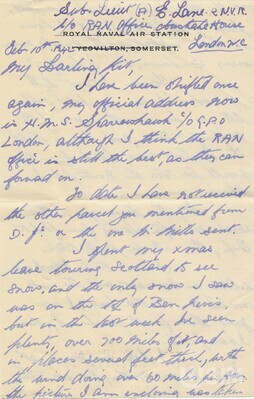 Sub. Lieut (A) E. Lane R.N.V.R.
ROYAL NAVAL AIR STATION
c/o RAN. Office Australia House
Feb 10th
YEOVILTON, SOMERSET.
London WC
My Darling
I have been shifted once
again, my official address now
is H.M.S. Sparrowhawk c/o G.P.O
London, although I think the RAN
office is still the best, as they can
forward on.
To date I have not received
the other parcel you mentioned from
D. J's or the one sent.
I spent my xmas
leave touring Scotland to see
snow, and the only snow I saw
was on the top of Ben Nevis.
but in the last week I've seen
plenty, over 700 miles of it, and
in places several feet thick, with
the wind doing over 60 miles per hour
the picture I am enclosing was taken